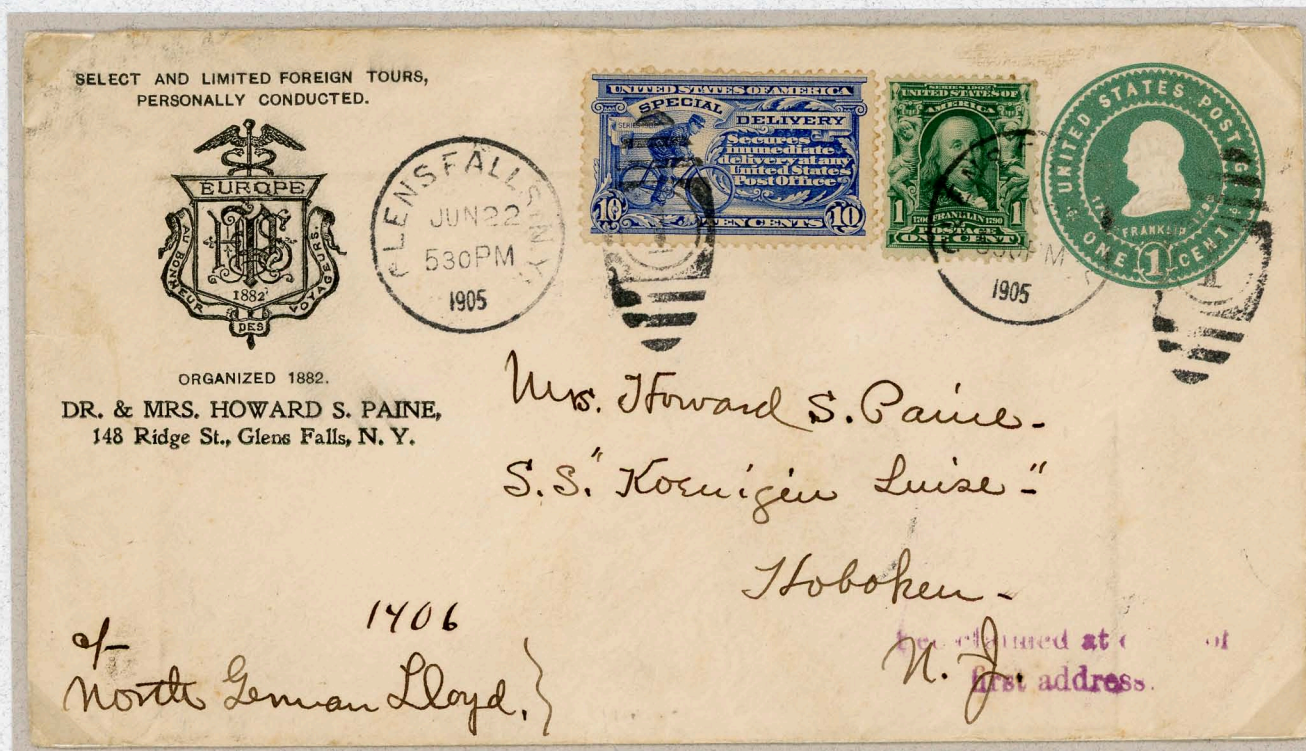 SELECT AND LIMITED FOREIGN TOURS,
PERSONALLY CONDUCTED.
EUROPE
HPS
1882
AU BONHEUR
DES
VOYAGEURS.
ORGANIZED 1882.
DR. & MRS. HOWARD S. PAINE,
148 Ridge St., Glens Falls, N. Y.
GLENS FALLS, N.Y.
JUN 22
530PM
1905
UNITED STATES OF AMERICA
SPECIAL
DELIVERY
Secures
immediate
delivery at any
United States
Post Office
10 TEN CENTS 10
SERIES 1902
UNITED STATES OF
AMERICA
1 1706 FRANKLIN 1790 1
POSTAGE
ONE CENT
1905
UNITED STATES POSTAGE
FRANKLIN
ONE 1 CENT
Mrs. Howard S. Paine-
S.S. "Koenigin Luise-"
Hoboken-
N. J.
at
first address.
1406
c/-
North German Lloyd. }